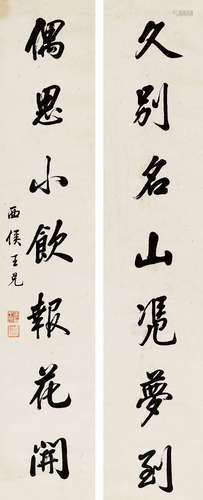 久别名山凭夢到
偶思小飲報花開
西侯王兄